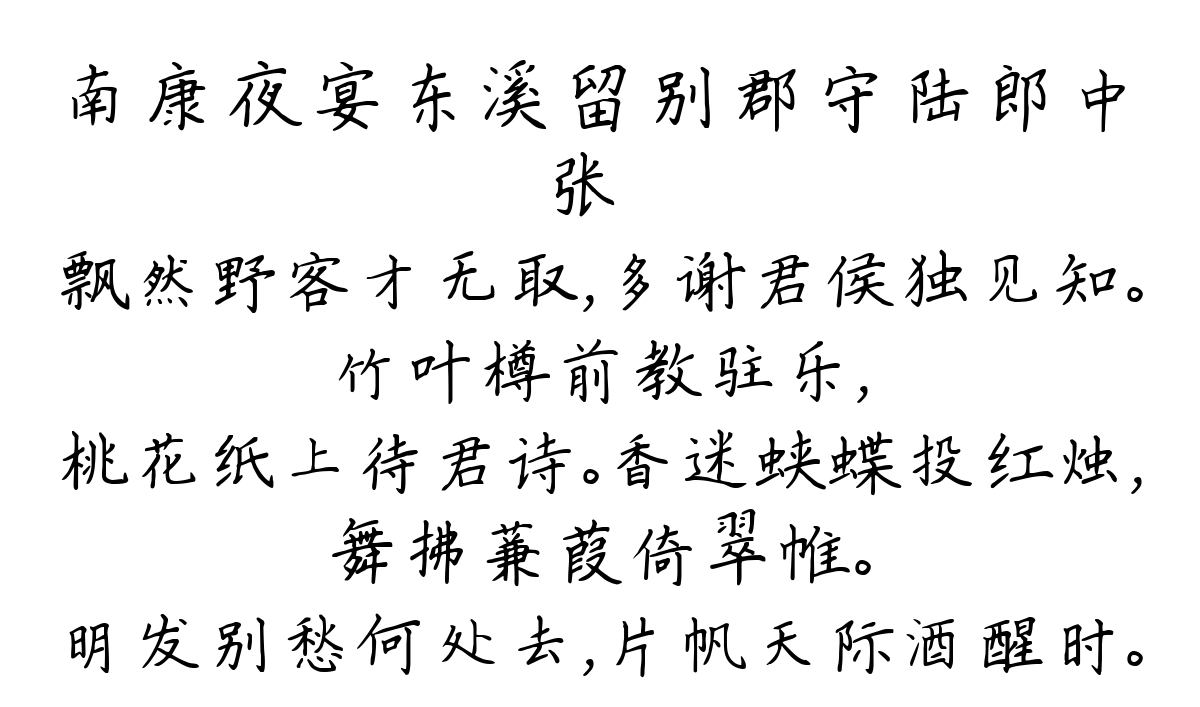 南康夜宴东溪留别郡守陆郎中
张
飘然野客才无取,多谢君侯独见知。
竹叶樽前教驻乐,
桃花纸上待君诗。香迷蛱蝶投红烛,
舞拂蒹葭倚翠帷。
明发别愁何处去,片帆天际酒醒时。